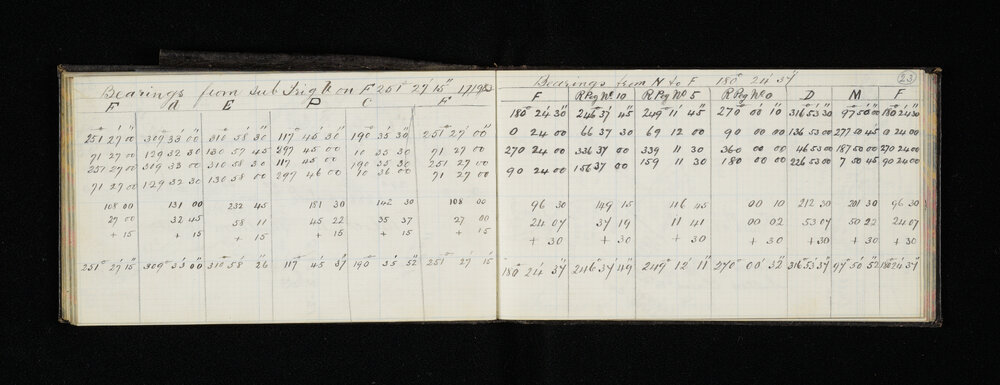 Bearings from Sub Trig k on F 251° 27' 15"
F A E P C F
251° 27' 00" 309° 33' 00" 310° 58' 30" 117° 45' 30" 190° 35' 30" 251° 27' 00"
71 27 00 129 32 30 130 57 45 297 45 00 10 35 30 71 27 00
251 27 00 309 33 00 310 58 30 117 45 00 190 35 30 251 27 00
71 27 00 129 32 30 130 58 00 297 46 00 10 36 00 71 27 00
108 00 131 00 232 45 181 30 142 30 108 00
27 00 32 45 58 11 45 22 35 37 27 00
+ 15 + 15 + 15 + 15 + 15 + 15
251° 27' 15" 309° 33' 00" 310° 58' 26 117° 45' 37 190° 35' 52" 251° 27' 15
23
Bearings from N to F 180° 24' 37"
F R Peg No 10 R Peg No 5 R Peg No 0 D M F
180° 24' 30" 246° 37' 45 249° 11' 45" 270° 00' 10 316° 53' 30 97° 50' 00" 180° 24' 30
0 24 00 66 37 30 69 12 00 90 00 00 136 53 00 277 50 45 0 24 00
270 24 00 336 37 00 339 11 30 360 00 00 46 53 00 187 50 00 270 24 00
90 24 00 156 37 00 159 11 30 180 00 00 226 53 00 7 50 45 90 24 00
96 30 149 15 116 45 00 10 212 30 201 30 96 30
24 07 37 19 11 41 00 02 53 07 50 22 24 07
+ 30 + 30 + 30 + 30 + 30 + 30 + 30
180° 24' 37 246° 37' 49 249° 12' 11" 270° 00' 32" 316° 53' 37 97° 50' 52 180° 24' 37